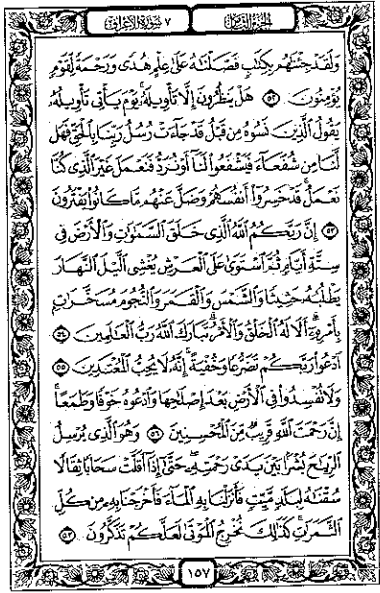 الجزء الثامن ٧ سورة الأعراف
وَلَقَدْ جِئْنَٰهُم بِكِتَٰبٍ فَصَّلْنَٰهُ عَلَىٰ عِلْمٍ هُدًى وَرَحْمَةً لِّقَوْمٍ
يُؤْمِنُونَ ٥٢ هَلْ يَنظُرُونَ إِلَّا تَأْوِيلَهُۥ يَوْمَ يَأْتِى تَأْوِيلُهُۥ
يَقُولُ ٱلَّذِينَ نَسُوهُ مِن قَبْلُ قَدْ جَآءَتْ رُسُلُ رَبِّنَا بِٱلْحَقِّ فَهَل
لَّنَا مِن شُفَعَآءَ فَيَشْفَعُوا۟ لَنَآ أَوْ نُرَدُّ فَنَعْمَلَ غَيْرَ ٱلَّذِى كُنَّا
نَعْمَلُ قَدْ خَسِرُوٓا۟ أَنفُسَهُمْ وَضَلَّ عَنْهُم مَّا كَانُوا۟ يَفْتَرُونَ
٥٣ إِنَّ رَبَّكُمُ ٱللَّهُ ٱلَّذِى خَلَقَ ٱلسَّمَٰوَٰتِ وَٱلْأَرْضَ فِى
سِتَّةِ أَيَّامٍ ثُمَّ ٱسْتَوَىٰ عَلَى ٱلْعَرْشِ يُغْشِى ٱلَّيْلَ ٱلنَّهَارَ
يَطْلُبُهُۥ حَثِيثًا وَٱلشَّمْسَ وَٱلْقَمَرَ وَٱلنُّجُومَ مُسَخَّرَٰتٍۭ
بِأَمْرِهِۦٓ أَلَا لَهُ ٱلْخَلْقُ وَٱلْأَمْرُ تَبَارَكَ ٱللَّهُ رَبُّ ٱلْعَٰلَمِينَ ٥٤
ٱدْعُوا۟ رَبَّكُمْ تَضَرُّعًا وَخُفْيَةً إِنَّهُۥ لَا يُحِبُّ ٱلْمُعْتَدِينَ ٥٥
وَلَا تُفْسِدُوا۟ فِى ٱلْأَرْضِ بَعْدَ إِصْلَٰحِهَا وَٱدْعُوهُ خَوْفًا وَطَمَعًا
إِنَّ رَحْمَتَ ٱللَّهِ قَرِيبٌ مِّنَ ٱلْمُحْسِنِينَ ٥٦ وَهُوَ ٱلَّذِى يُرْسِلُ
ٱلرِّيَٰحَ بُشْرًۢا بَيْنَ يَدَىْ رَحْمَتِهِۦ حَتَّىٰٓ إِذَآ أَقَلَّتْ سَحَابًا ثِقَالًا
سُقْنَٰهُ لِبَلَدٍ مَّيِّتٍ فَأَنزَلْنَا بِهِ ٱلْمَآءَ فَأَخْرَجْنَا بِهِۦ مِن كُلِّ
ٱلثَّمَرَٰتِ كَذَٰلِكَ نُخْرِجُ ٱلْمَوْتَىٰ لَعَلَّكُمْ تَذَكَّرُونَ ٥٧
١٥٧